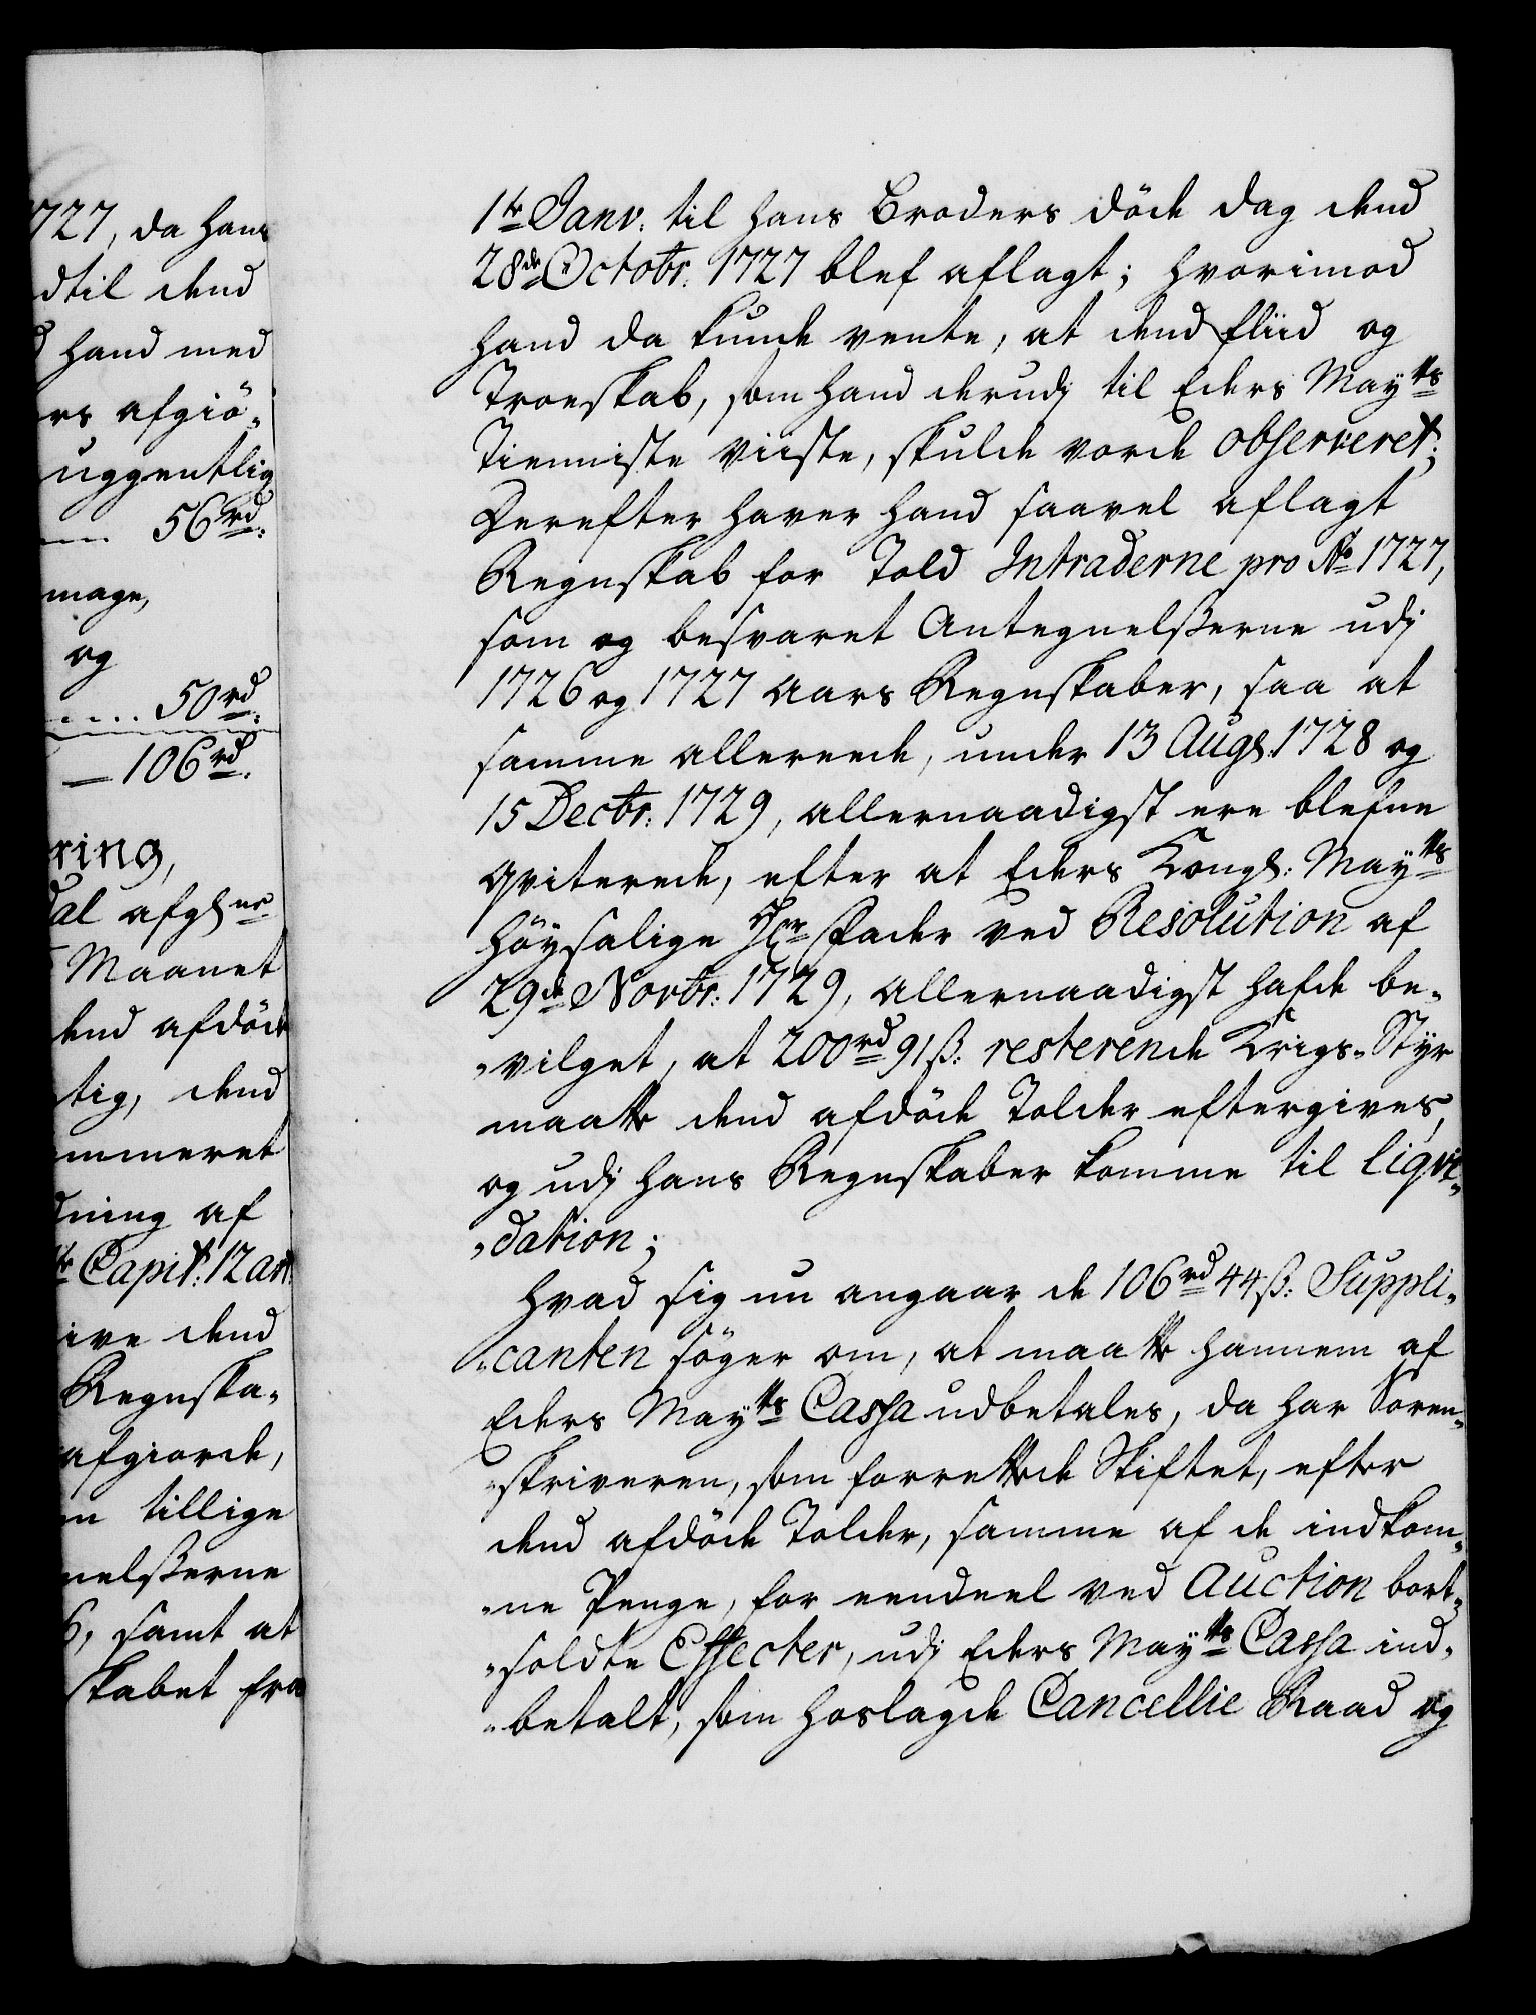 727, da hans
dtil dend
d hand med
rs afgiö-
uggentlig
56 rd:
mage,
og
50 rd:
106 rd.
ring,
dal afgl ne
Maanet
dend afdöde
tig, dend
mmeret
dning af
te Capit: 12 art:
ive dend
Regnska-
afgiorde,
n tillige
nelßerne
6, samt at
skabet fra
1te Janv: til hans Broders döde dag dend
28de Octobr: 1727 blef aflagt; hvorimod
hand da kunde vente, at dend fliid og
Troeskab, som hand derudj til Eders Mayts
Tienniste viiste, skulde vorde observeret;
Derefter haver hand saavel aflagt
Regnskab for Told Intraderne pro Ao 1727,
som og besvaret Antegnelßerne udj
1726 og 1727 Aars Regnskaber, saa at
samme allereede, under 13 Aug: 1728 og
15 Decbr: 1729, allernaadigst ere blefne
qviterede, efter at Eders Kongl: Mayts
höysalige Hr Fader ved Resolution af
29de Novbr: 1729, allernaadigst hafde be-
-vilget, at 200 rd 91 ß: resterende Krigs-Styr
maatte dend afdöde Tolder eftergives,
og udj hans Regnskaber komme til liqvi-
-dation;
Hvad sig nu angaar de 106 rd 44 ß: Suppli-
-canten söger om, at maatte hannem af
Eders Mayts Cassa udbetales, da har Soren-
-skriveren, som forrettede Skiftet, efter
dend afdöde Tolder, samme af de indkom-
-ne Penge, for eendeel ved Auction bort-
-soldte Effecter, udj Eders Mayts Cassa ind-
-betalt, som hoslagde Cancellie Raad og